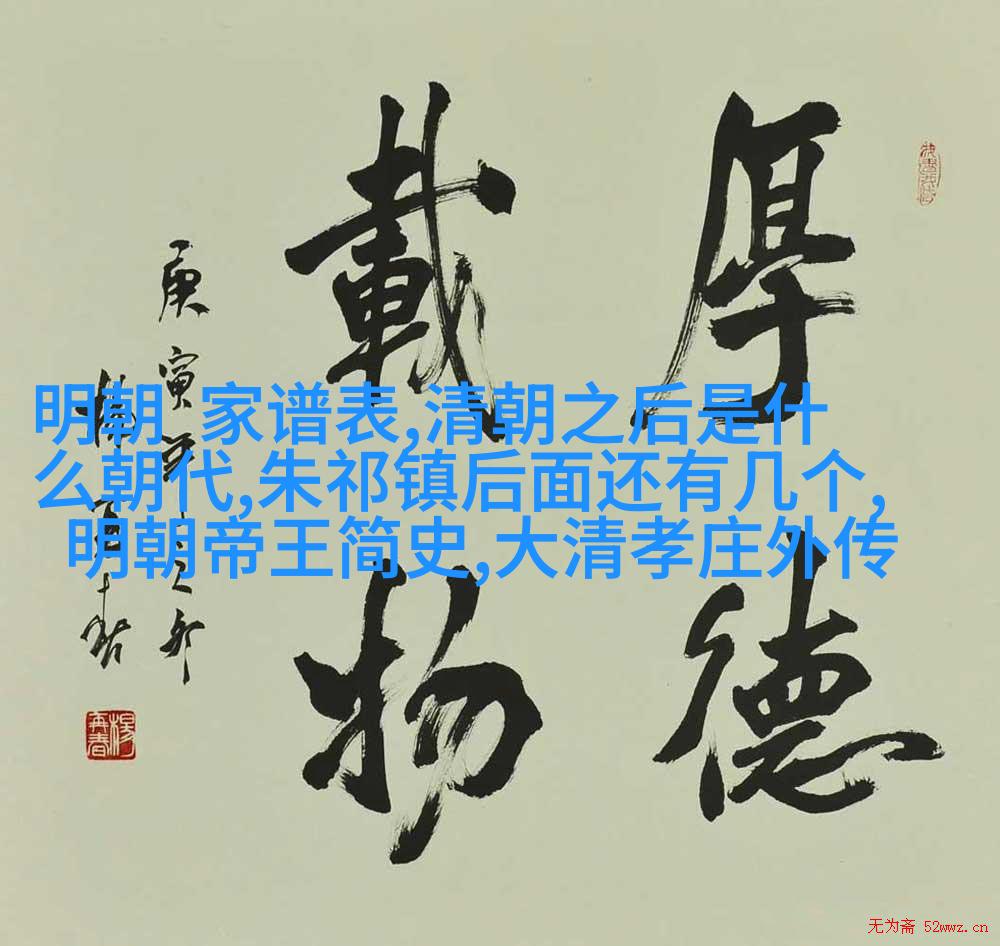 厚德
載物
庚寅
楊再春
明朝 家谱表,清朝之后是什
么朝代,朱祁镇后面还有几个,
明朝帝王简史,大清孝庄外传
楊再春
无为斋 52wwz.cn